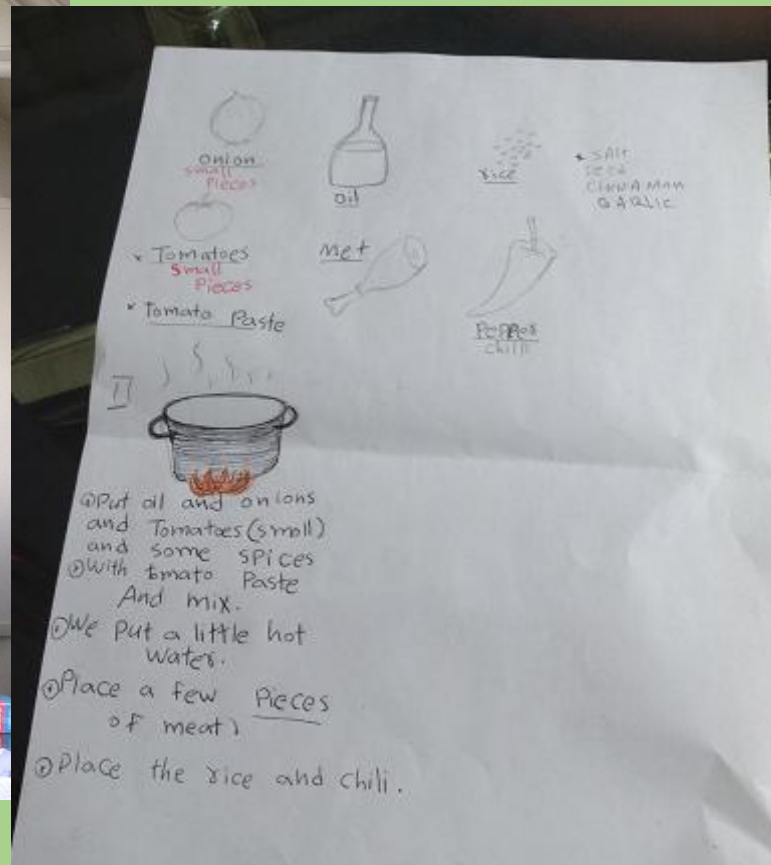 onion
small
Pieces
oil
rice
* SAlt
CINNAMAN
GARLIC
* Tomatoes
small
Pieces
Met
* Tomato Paste
PePPer
chilli
II
① Put oil and onions
and Tomatoes (small)
and some spices
② With tmato Paste
And mix.
We Put a little hot
water.
④ Place a few Pieces
of meat)
Place the rice and chili.